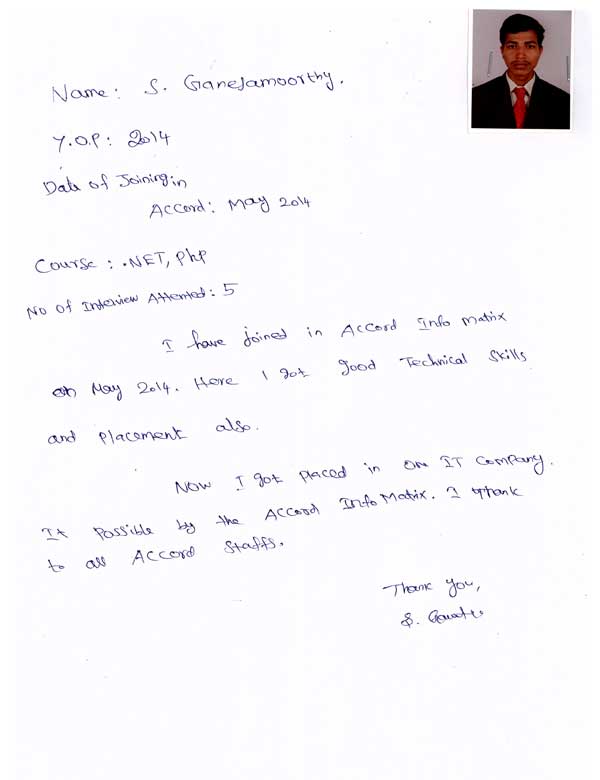 Name: S. Ganesamoorthy.
Y.O.P: 2014
Date of Joining in
Accord: May 2014
Course: .NET, Php
No Of Interview Attented: 5
I have joined in Accord Info Matrix
on May 2014. Here I got good Technical Skills
and placement also.
Now I got placed in one IT Company.
It Possible by the Accord Info Matrix. I thank
to all Accord Staffs.
Thank you,
S.